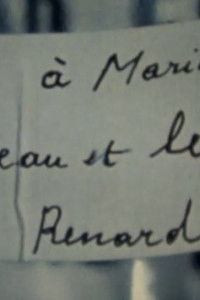 à Mari
eau et le
Renard